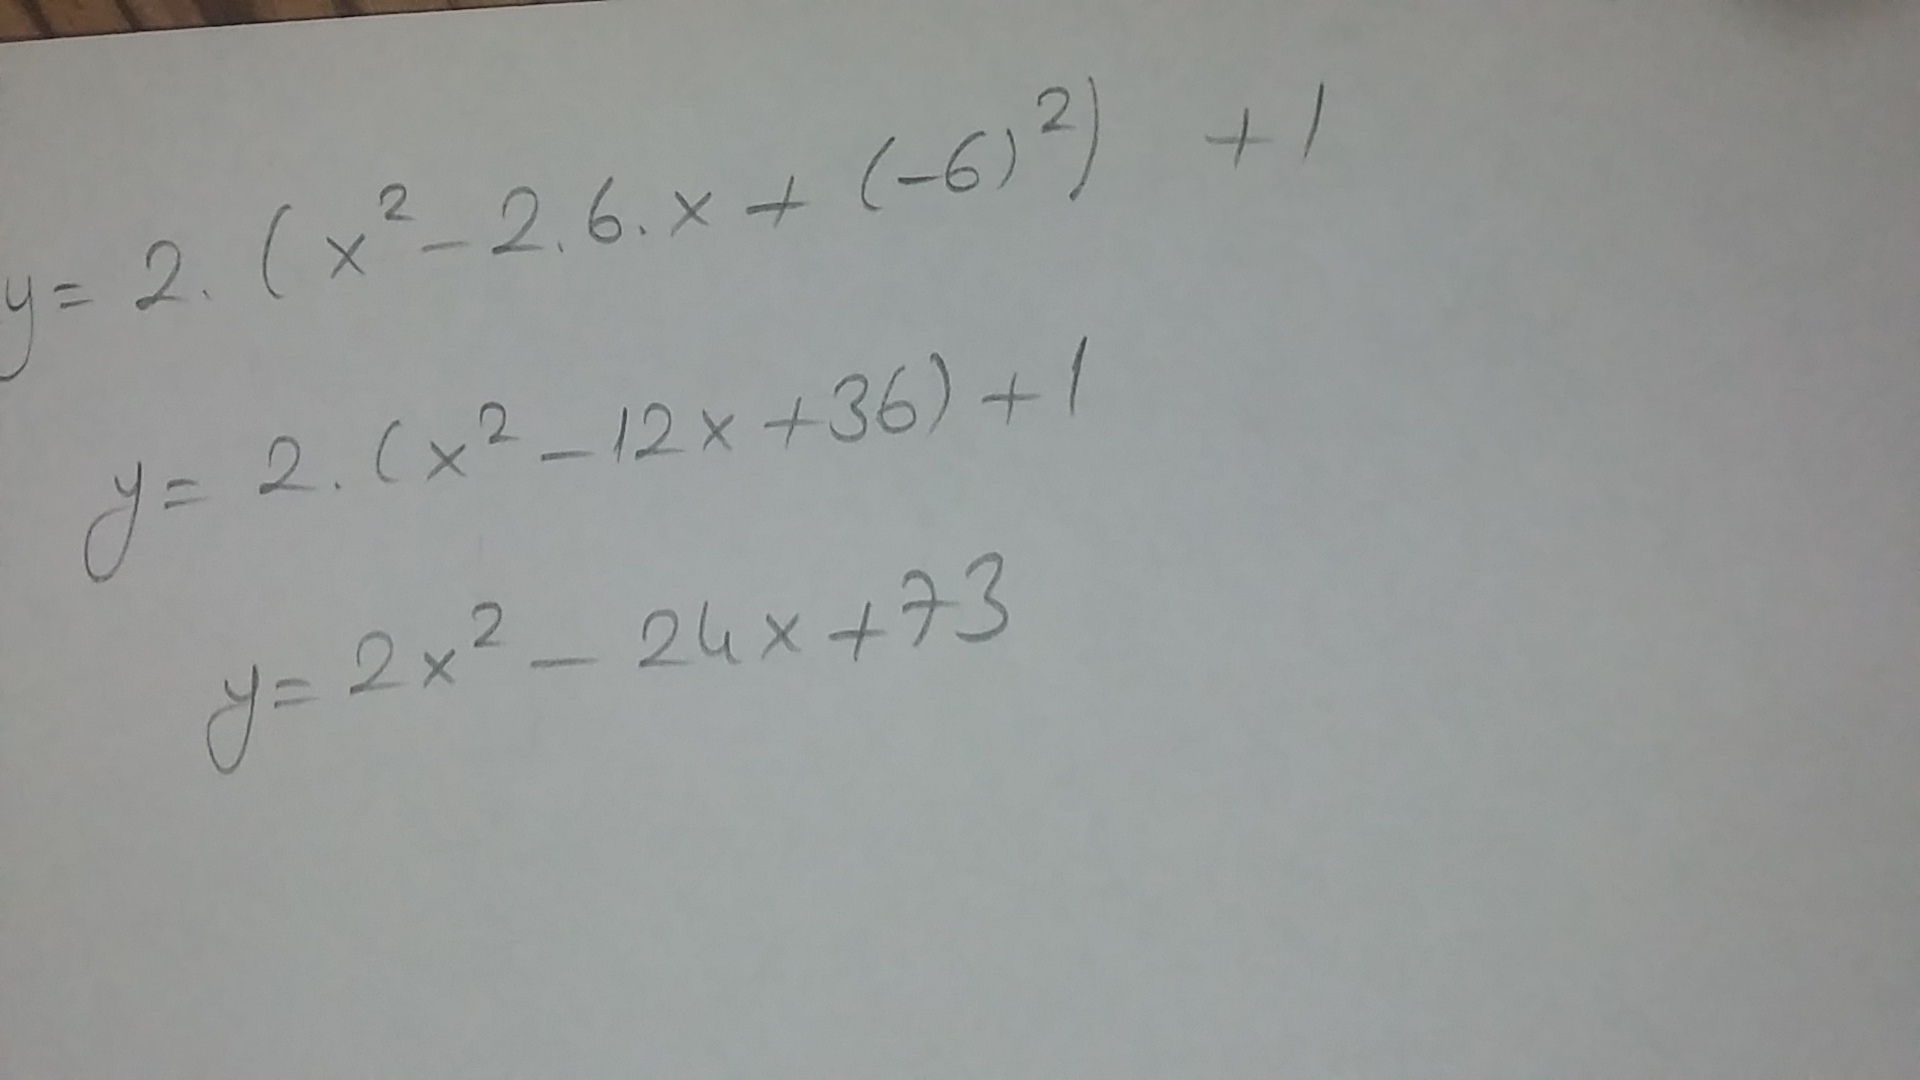 y = 2. (x² - 2.6.x + (-6)²) + 1
y = 2. (x² - 12x + 36) + 1
y = 2x² - 24x + 73